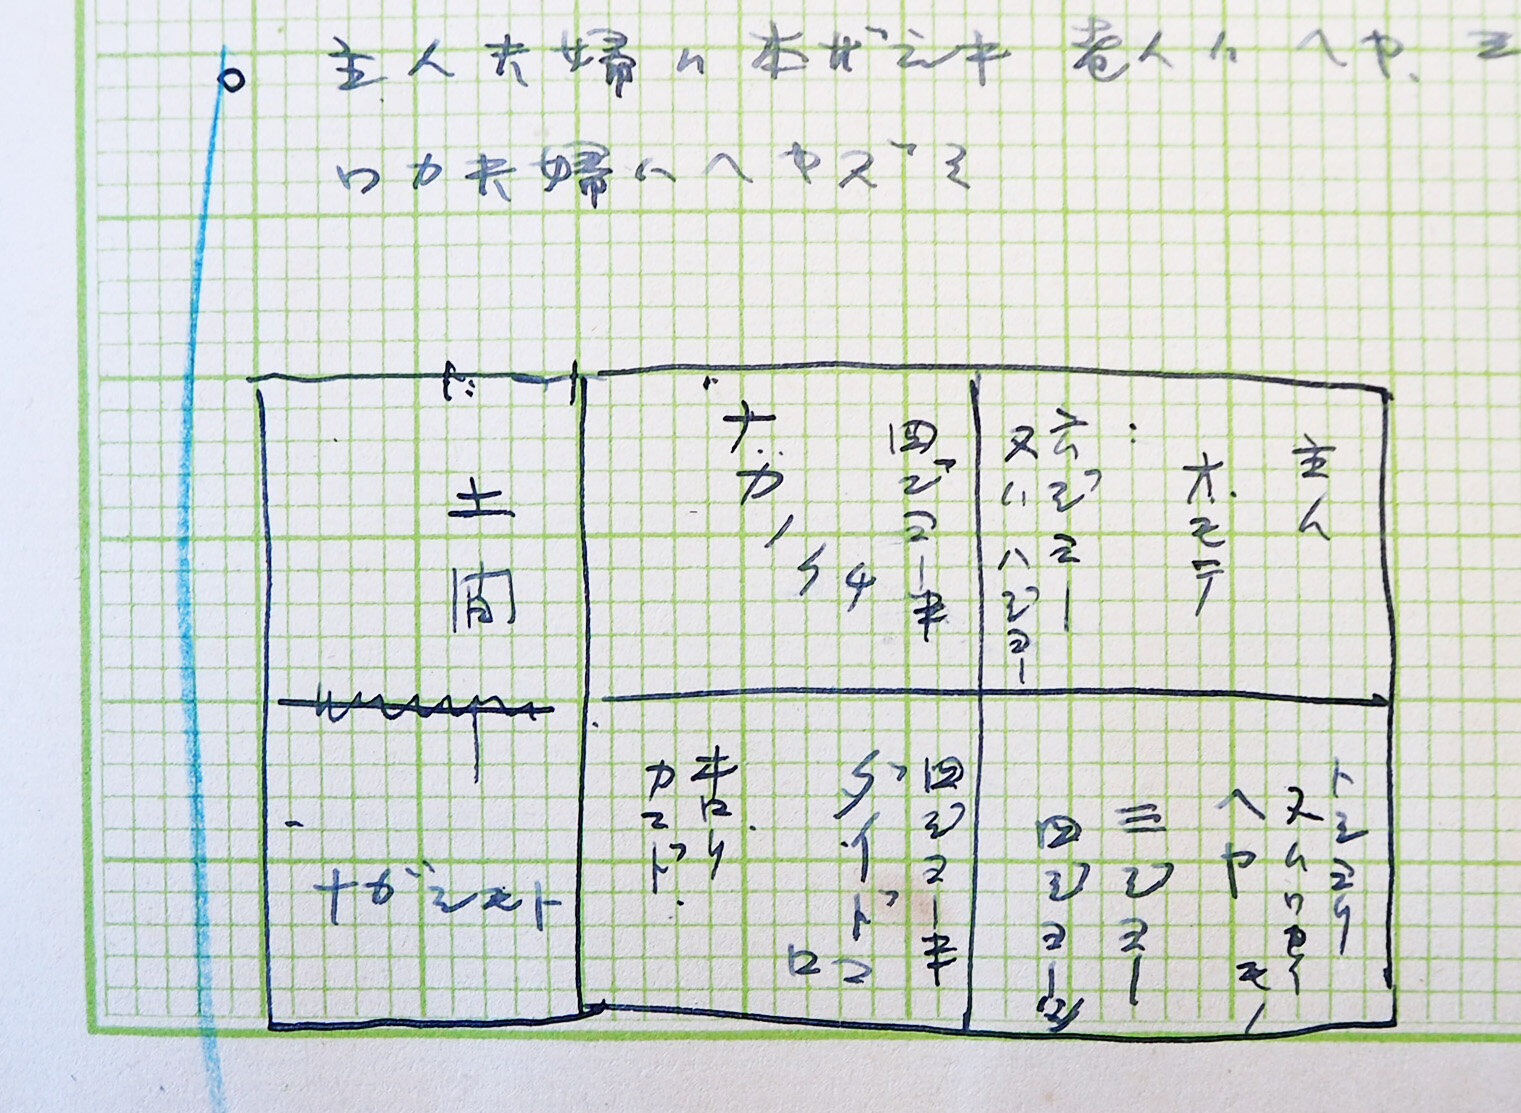 主人夫婦ハ本ザシキ 老人ハヘヤ、
ワカ夫婦ハヘヤズミ
主人
オモテ
六ジョー
又ハハジョー
四ジョー半
ナカノ
土間
トシヨリ
又ハ
ヘヤ
三ジョー
四ジョー
四ジョー半
ダイドコロ
カマド
ナガシモト